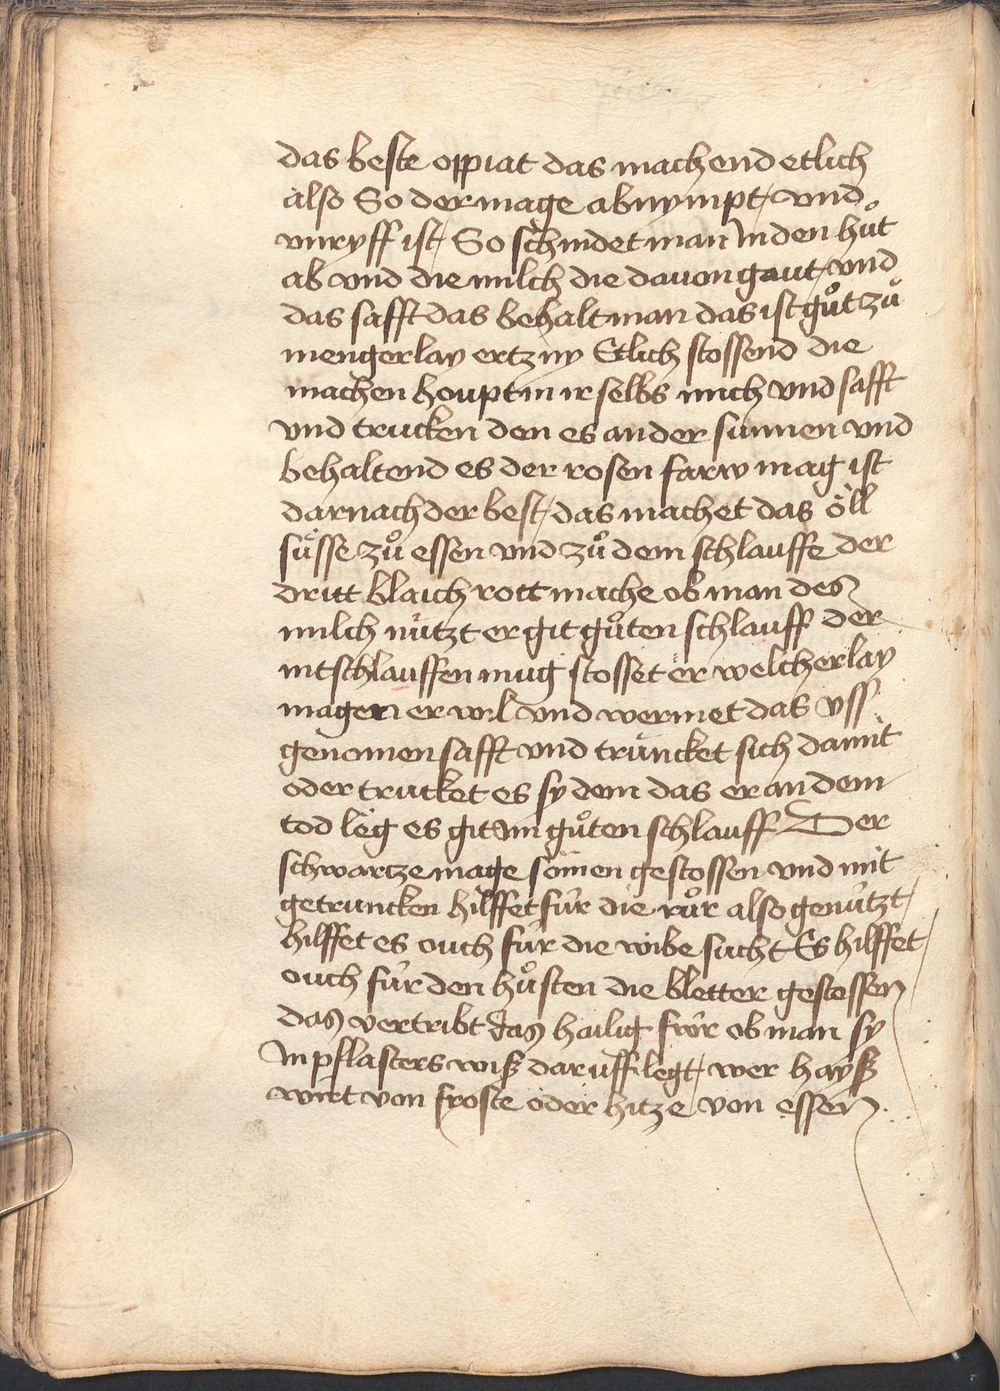 das beste oppiat das machend etlich
also So der mage abnympt / vnd
vnryff ist / So schindet man Im den hut
ab vnd die milch die dauon gaut / vnd
das safft das behalt man das ist gůt zů
mengerlay ertzny Etlich stossend die
machen houpt in ir selbs mich vnd safft
vnd trucken den es an der sunnen vnd
behaltend es der rosen farw mag ist
darnach der best / das machet das öll
süsse zů essen vnd zů dem schlauffe der
dritt blaich rott mache ob man des
milch nützt er git gůten schlauff der
nit schlauffen mug stosset er welcherlay
magen er wil vnd wermet das vss
genomen safft vnd trüncket sich damit
oder trucket es sy dem das er an dem
tod leg es git im gůten schlauff Der
schwartze mage somen gestossen vnd mit
getruncken hilffet für die růr also genützt /
hilffet es ouch für die wibe sucht Es hilffet
ouch für den hůsten die bletter gestossen
das vertribt das hailig fwr ob man sy
In pflasters wiß daruff legt / wer hayß
wirt von froste oder hitze von essen